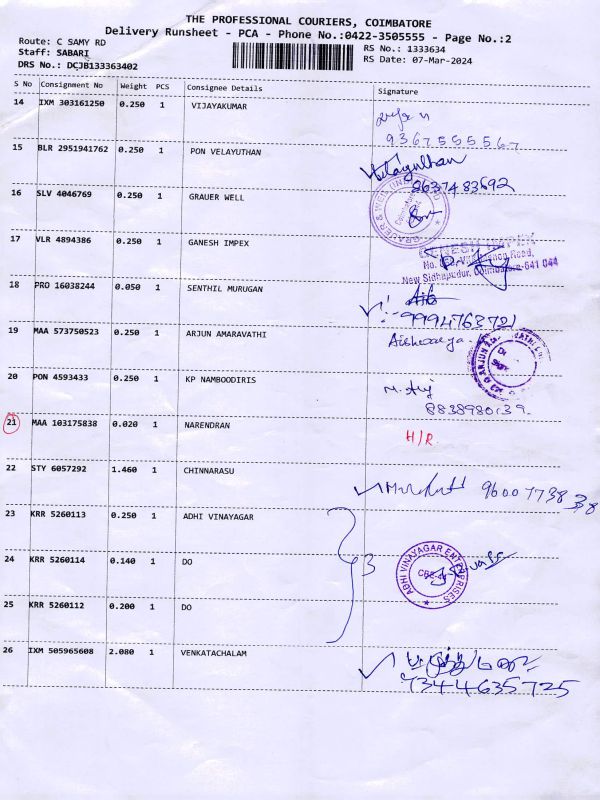 THE PROFESSIONAL COURIERS, COIMBATORE
Delivery Runsheet - PCA - Phone No.:0422-3505555 - Page No.:2
Route: C SAMY RD
RS No.: 1133634
Staff: SABARI
RS Date: 07-Mar-2024
DRS No.: DCJB133363402
S No Consignment No Weight PCS Consignee Details Signature
14 IXM 303161250 0.250 1 VIJAYAKUMAR
9367555567
15 BLR 2951941762 0.250 1 PON VELAYUTHAN
Velayuthan
9637483692
16 SLV 4046769 0.250 1 GRAUER WELL
GRAUER & WEIL
17 VLR 4894386 0.250 1 GANESH IMPEX
GENESH IMPEX
Road,
New Sidhapudur, Coimbatore-641 044
18 PRO 16038244 0.050 1 SENTHIL MURUGAN
9994763721
19 MAA 573750523 0.250 1 ARJUN AMARAVATHI
Aishwarya.
ARJUN
20 PON 4593433 0.250 1 KP NAMBOODIRIS
8838980139.
21 MAA 103175838 0.020 1 NARENDRAN
H/R.
22 STY 6057292 1.460 1 CHINNARASU
23 KRR 5260113 0.250 1 ADHI VINAYAGAR
24 KRR 5260114 0.140 1 DO
3
ADHI VINAYAGAR ENTERPRISES
25 KRR 5260112 0.200 1 DO
26 IXM 505965608 2.080 1 VENKATACHALAM
7344635725